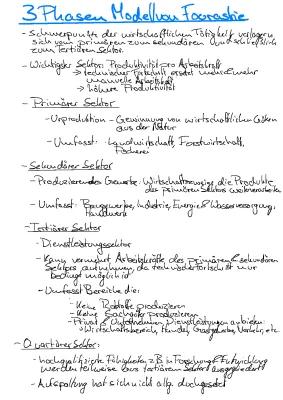 3 Phasen Modell von Fourastie
- Schwerpunkte der wirtschaftlichen Tätigkeit verlagern
sich vom primären zum sekundären und schließlich
zum Tertiären Sektor.
- Wichtigster Sektor: Produktivität pro Arbeitskraft
→ technischer Fortschritt ersetzt mehr & mehr
manuelle Arbeitskraft
→ höhere Produktivität
- Primärer Sektor
- Urproduktion - Gewinnung von wirtschaftlichen Gütern
aus der Natur
- Umfasst: Landwirtschaft, Forstwirtschaft,
Fischerei
- Sekundärer Sektor
- Produzierendes Gewerbe: Wirtschaftszweige die Produkte
des primären Sektors weiterverarb.
- Umfasst: Baugewerbe, Industrie, Energie & Wasserversorgung,
Handwerk
- Tertiärer Sektor
- Dienstleistungssektor
- Kann vermehrt Arbeitskräfte des primären & sekundären
Sektors aufnehmen, da techn. Fortschritt nur
bedingt möglich ist
- Umfasst Bereiche die:
- Keine Rohstoffe produzieren
- Keine Sachgüter produzieren
- Privat & Unternehmen Dienstleistungen anbieten
→ Wirtschaftsbereich, Handel, Gastgewerbe, Verkehr, etc.
- Quartärer Sektor:
- hochqualifizierte Fähigkeiten z.B in Forschung & Entwicklung
werden teilweise aus tertiärem Sektor ausgegliedert
- Aufspaltung hat sich nicht allg. durchgesetzt